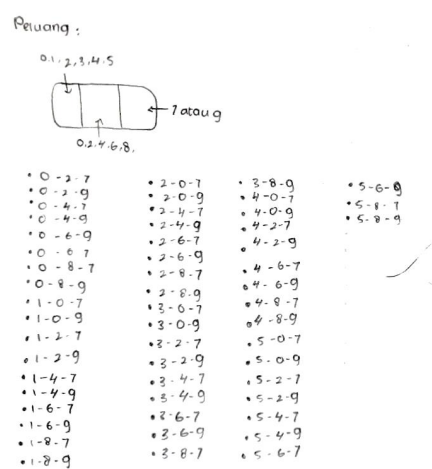 Peluang :
0.1.2,3,4.5
7 atau 9
0.2.4.6.8.
• 0 - 2 - 7
• 0 - 2 - 9
• 0 - 4 - 7
• 0 - 4 - 9
• 0 - 6 - 9
• 0 - 6 7
• 0 - 8 - 7
• 0 - 8 - 9
• 1 - 0 - 7
• 1 - 0 - 9
• 1 - 2 - 7
• 1 - 2 - 9
• 1 - 4 - 7
• 1 - 4 - 9
• 1 - 6 - 7
• 1 - 6 - 9
• 1 - 8 - 7
• 1 - 8 - 9
• 2 - 0 - 7
• 2 - 0 - 9
• 2 - 4 - 7
• 2 - 4 - 9
• 2 - 6 - 7
• 2 - 6 - 9
• 2 - 8 - 7
• 2 - 8 - 9
• 3 - 0 - 7
• 3 - 0 - 9
• 3 - 2 - 7
• 3 - 2 - 9
• 3 - 4 - 7
• 3 - 4 - 9
• 3 - 6 - 7
• 3 - 6 - 9
• 3 - 8 - 7
• 3 - 8 - 9
• 4 - 0 - 7
• 4 - 0 - 9
• 4 - 2 - 7
• 4 - 2 - 9
• 4 - 6 - 7
• 4 - 6 - 9
• 4 - 8 - 7
• 4 - 8 - 9
• 5 - 0 - 7
• 5 - 0 - 9
• 5 - 2 - 7
• 5 - 2 - 9
• 5 - 4 - 7
• 5 - 4 - 9
• 5 - 6 - 7
• 5 - 6 - 9
• 5 - 8 - 7
• 5 - 8 - 9